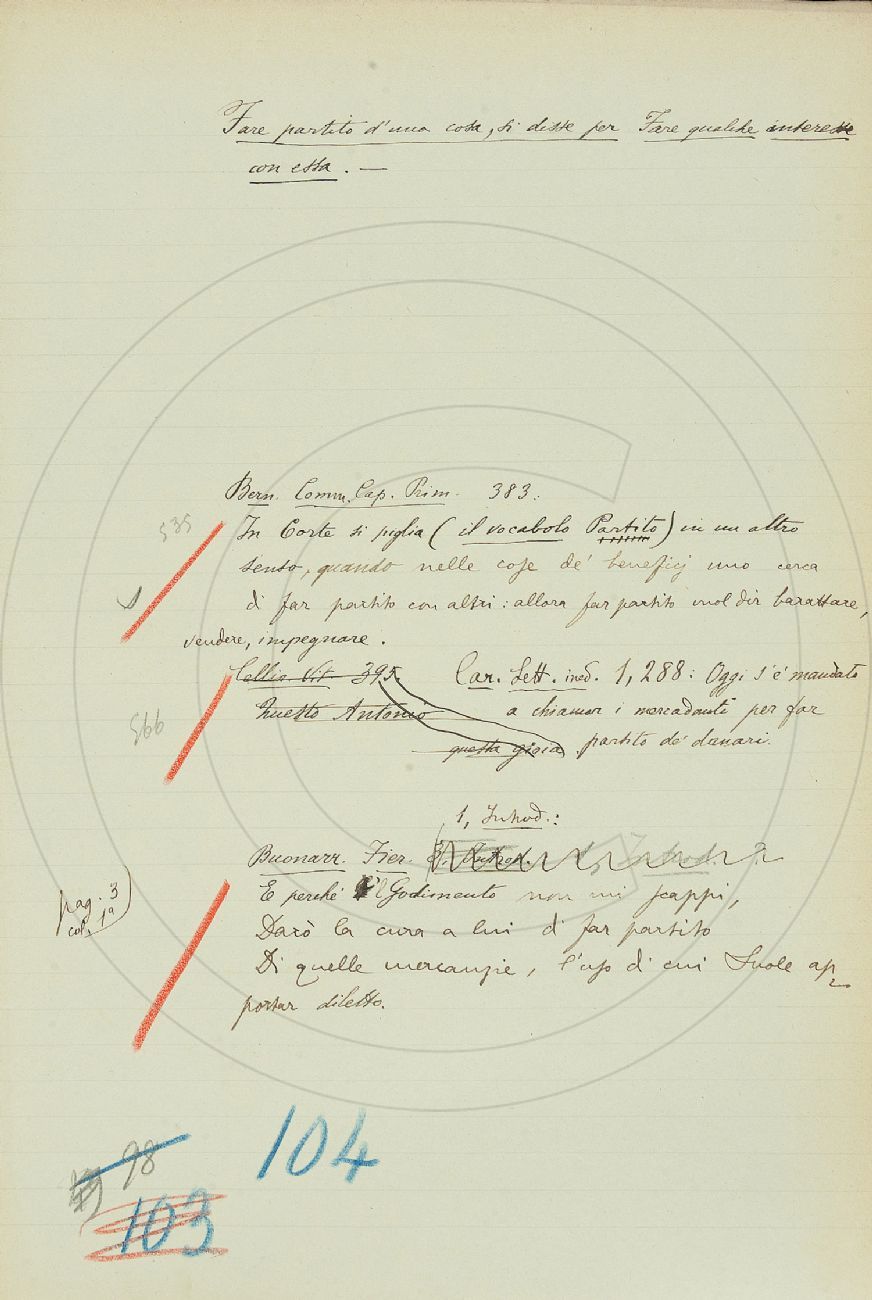 Fare partito d'una cosa, si disse per Fare qualche interesse
con essa. —
Bern. Comm. Cap. Prim. 383.
535
In Corte si piglia (il vocabolo Partito) in un altro
senso, quando nelle cose de' beneficj uno cerca
di far partito con altri: allora far partito vuol dir barattare,
vendere, impegnare.
Cellin. Vit. 395.
Car. Lett. ined. 1, 288: Oggi s'è mandato
566
Questo Antonio
a chiamar i mercadanti per far
questa gioia
partito de' danari.
1, Introd.:
Buonarr. Fier. Introd.
pag. 3
col. 1ª
E perchè 'l Godimento non mi scappi,
Darò la cura a lui di far partito
Di quelle mercanzie, l'uso di cui Suole ap
portar diletto.
98
104
103